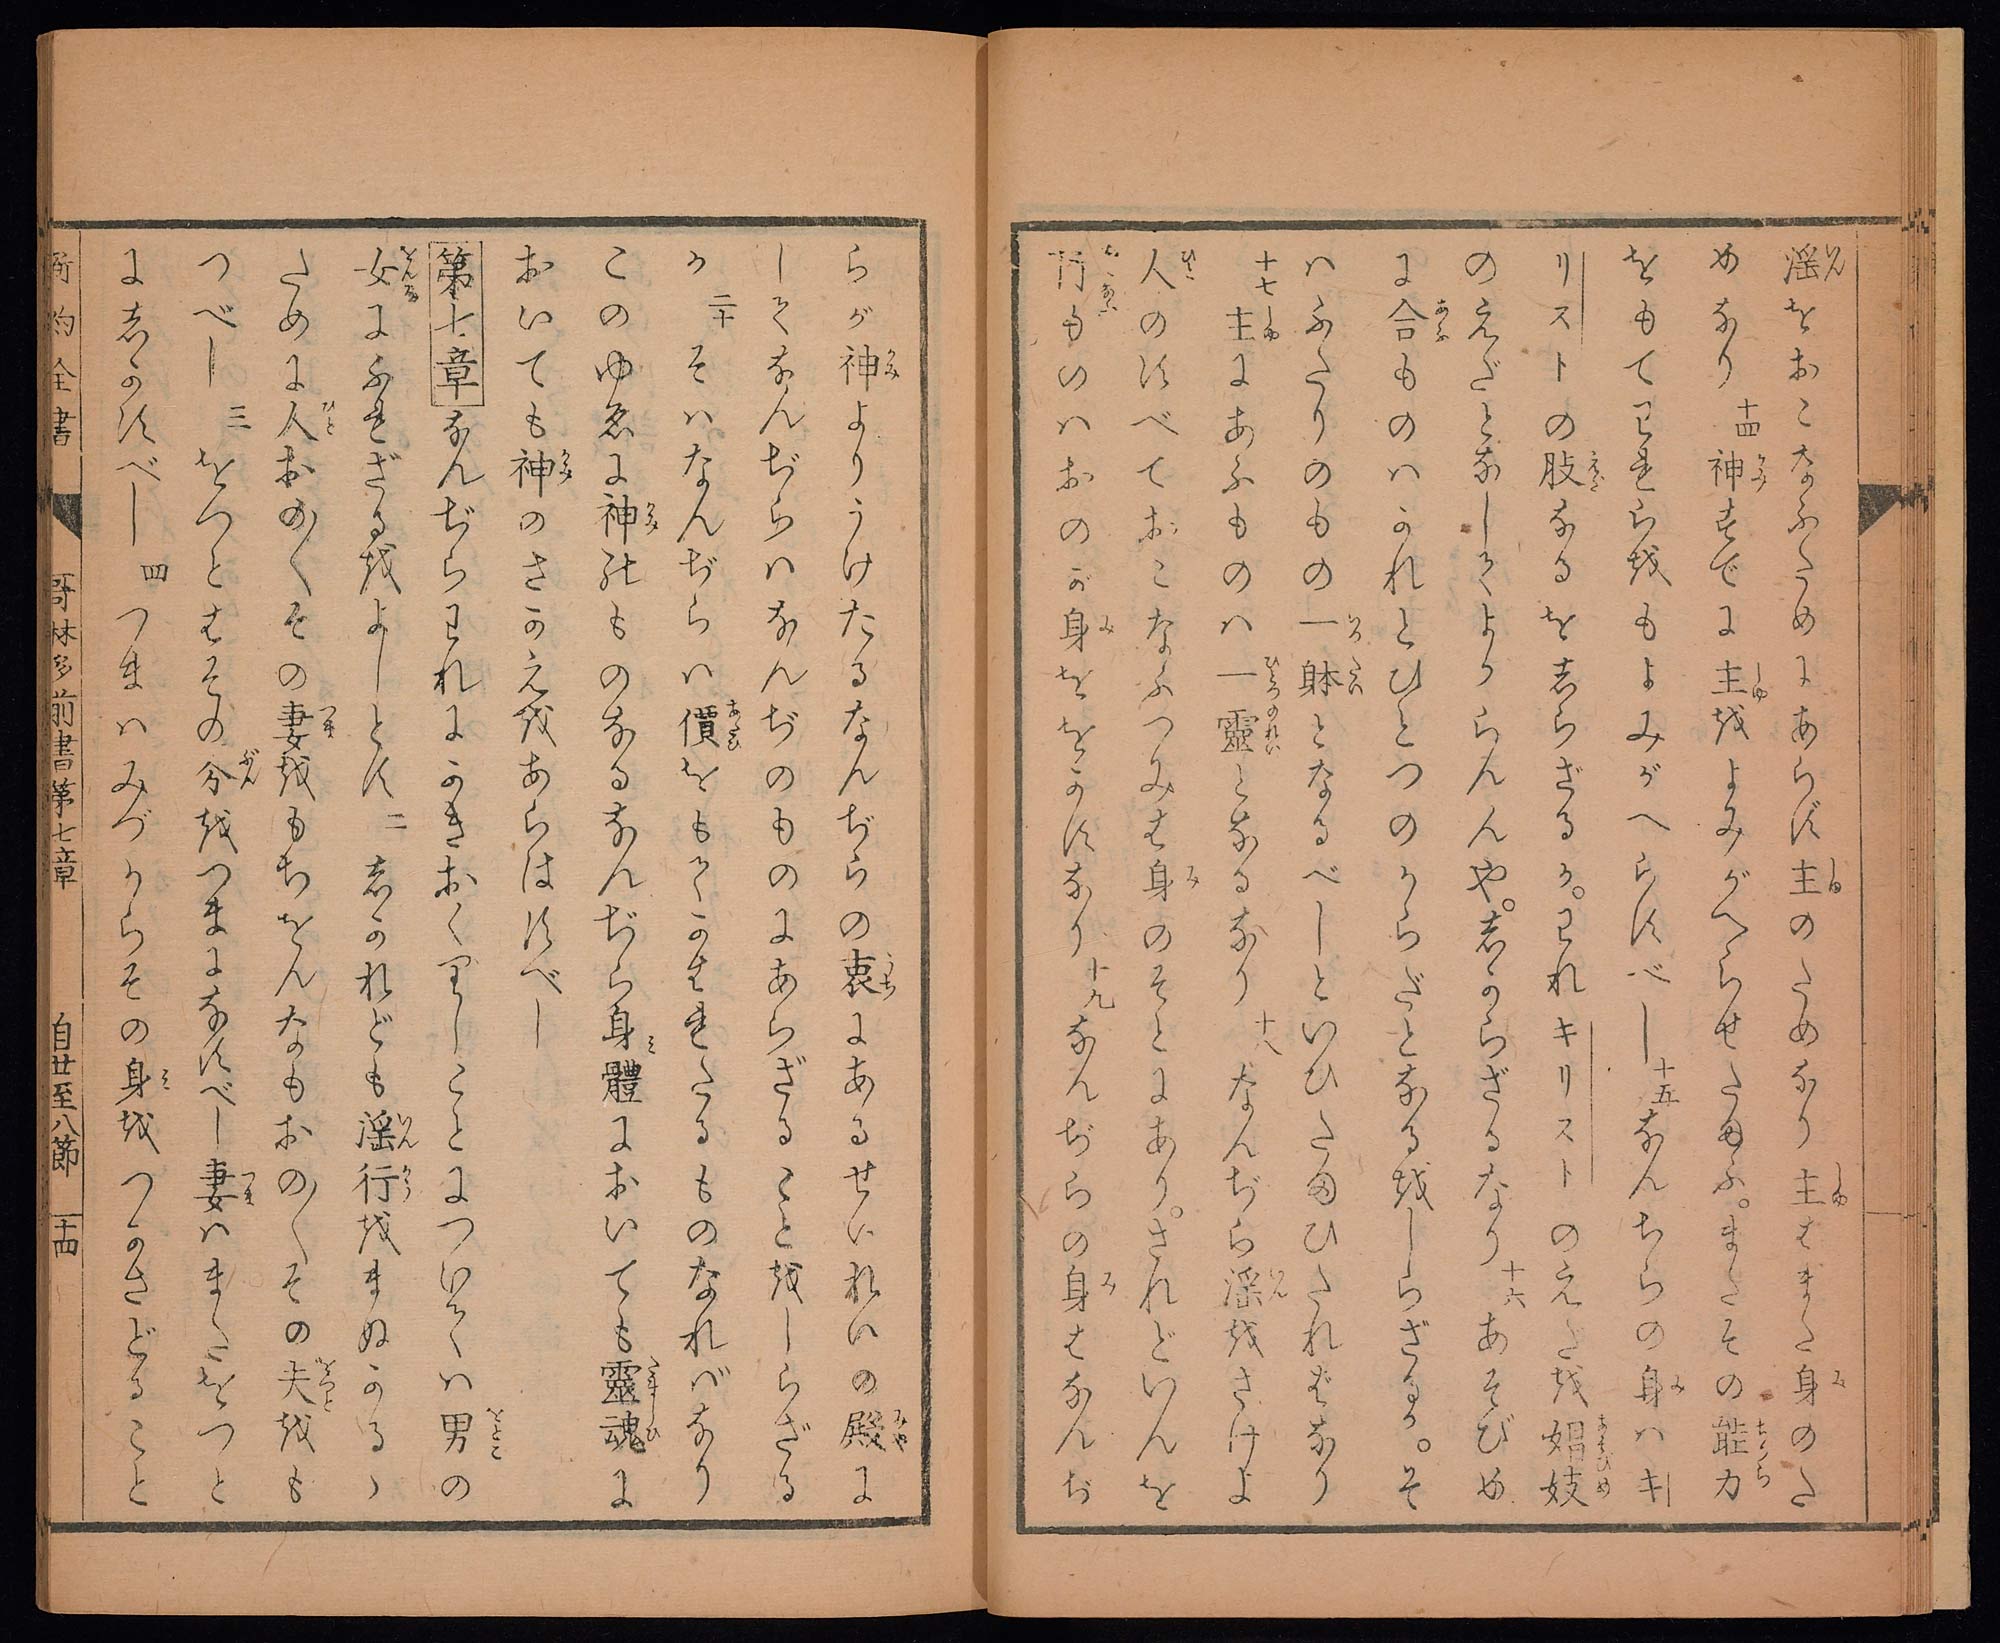 淫をおこなふためにあらず主のためなり主はまた身のた
めなり十四神すでに主をよみがへらせたまふ。またその能力
をもてわれらをもよみがへらすべし十五なんぢらの身ハキ
リストの肢なるをしらざるか。われキリストのえだを娼妓
のえだとなしてよからんや。しからざるなり十六あそびめ
に合ものハかれとひとつのからだとなるをしらざるか。そ
ハふたりのもの一躰となるべしといひたまひたればなり
十七主にあふものハ一靈となるなり十八なんぢら淫をさけよ
人のすべておこなふつみは身のそとにあり。されどいんを
行ものハおのが身ををかすなり十九なんぢらの身はなんぢ
らが神よりうけたるなんぢらの衷にあるせいれいの殿に
してなんぢらハなんぢのものにあらざることをしらざる
か二十そハなんぢらハ價をもてかはれたるものなれバなり
このゆゑに神のものなるなんぢら身體においても靈魂に
おいても神のさかえをあらはすべし
第七章なんぢらわれにかきおくりしことについてハ男の
女にふれざるをよしとす二しかれども淫行をまぬかるゝ
ために人おの〱その妻をもちをんなもおの〱その夫をも
つべし三をつとはその分をつまになすべし妻ハまたをつと
にしかすべし四つまハみづからその身をつかさどること
新約全書
哥林多前書第七章
自廿至八節
十四